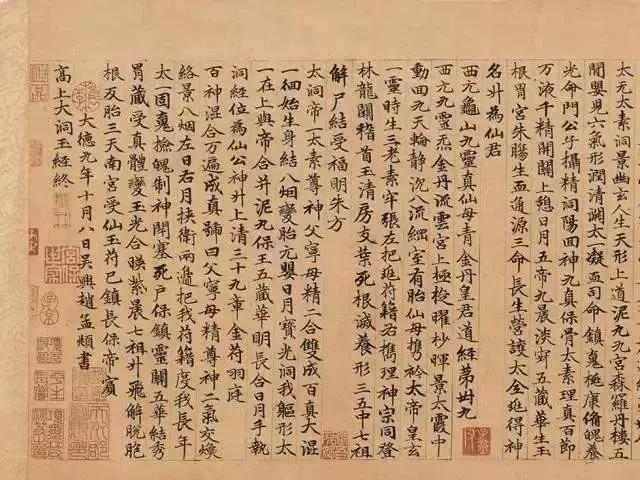 太元太素洞景幽玄人生天形上道泥丸九宮森羅丹樓五
閒嬰兒六氣形潤清淵太一凝並司命鎮魂桃康脩魄養
光命門公子攝精洞陽回神九晨保骨太素理真百節
万液千精開關上憩日月五帝九晨淡五藏華生玉
根胃宮朱腸生血通源三命長生營護太金延得神
名升為仙君
西元龜山九靈真仙母青金丹皇君道經第卅九
西元九靈炁金丹流雲宮上極稜曜杪暉景太霞中
動回九天輪靜沉八流室有胎仙母攜衿太帝皇玄
一靈時生三老素牢張左把延符籍右攜理神宗同登
林龍關稽首玉清房支葉死根滅養形三五中七祖
解尸結受福明朱方
太洞帝一太素尊神父寧母精二合雙成百真大混
一徊始生身結八煙變胎元嬰日月寶光洞我軀形太
一在上與帝合并泥丸保玉五藏華明長合日月手執
洞經位為仙公神升上清三十九章金符羽庭
百神混合万遍成真號曰父寧母精尊神二氣交煥
絡景八烟左日右月挾衛兩邊把我符籍度我長年
太一固魂檢魄制神開塞死戶保鎮靈關五華結秀
胃藏受真體變玉光合映紫晨七祖升飛解脫胞
根反胎三天南宮受仙玉符已鎮長保帝賓
大德九年十月八日吳興趙孟頫書
高上大洞玉經終